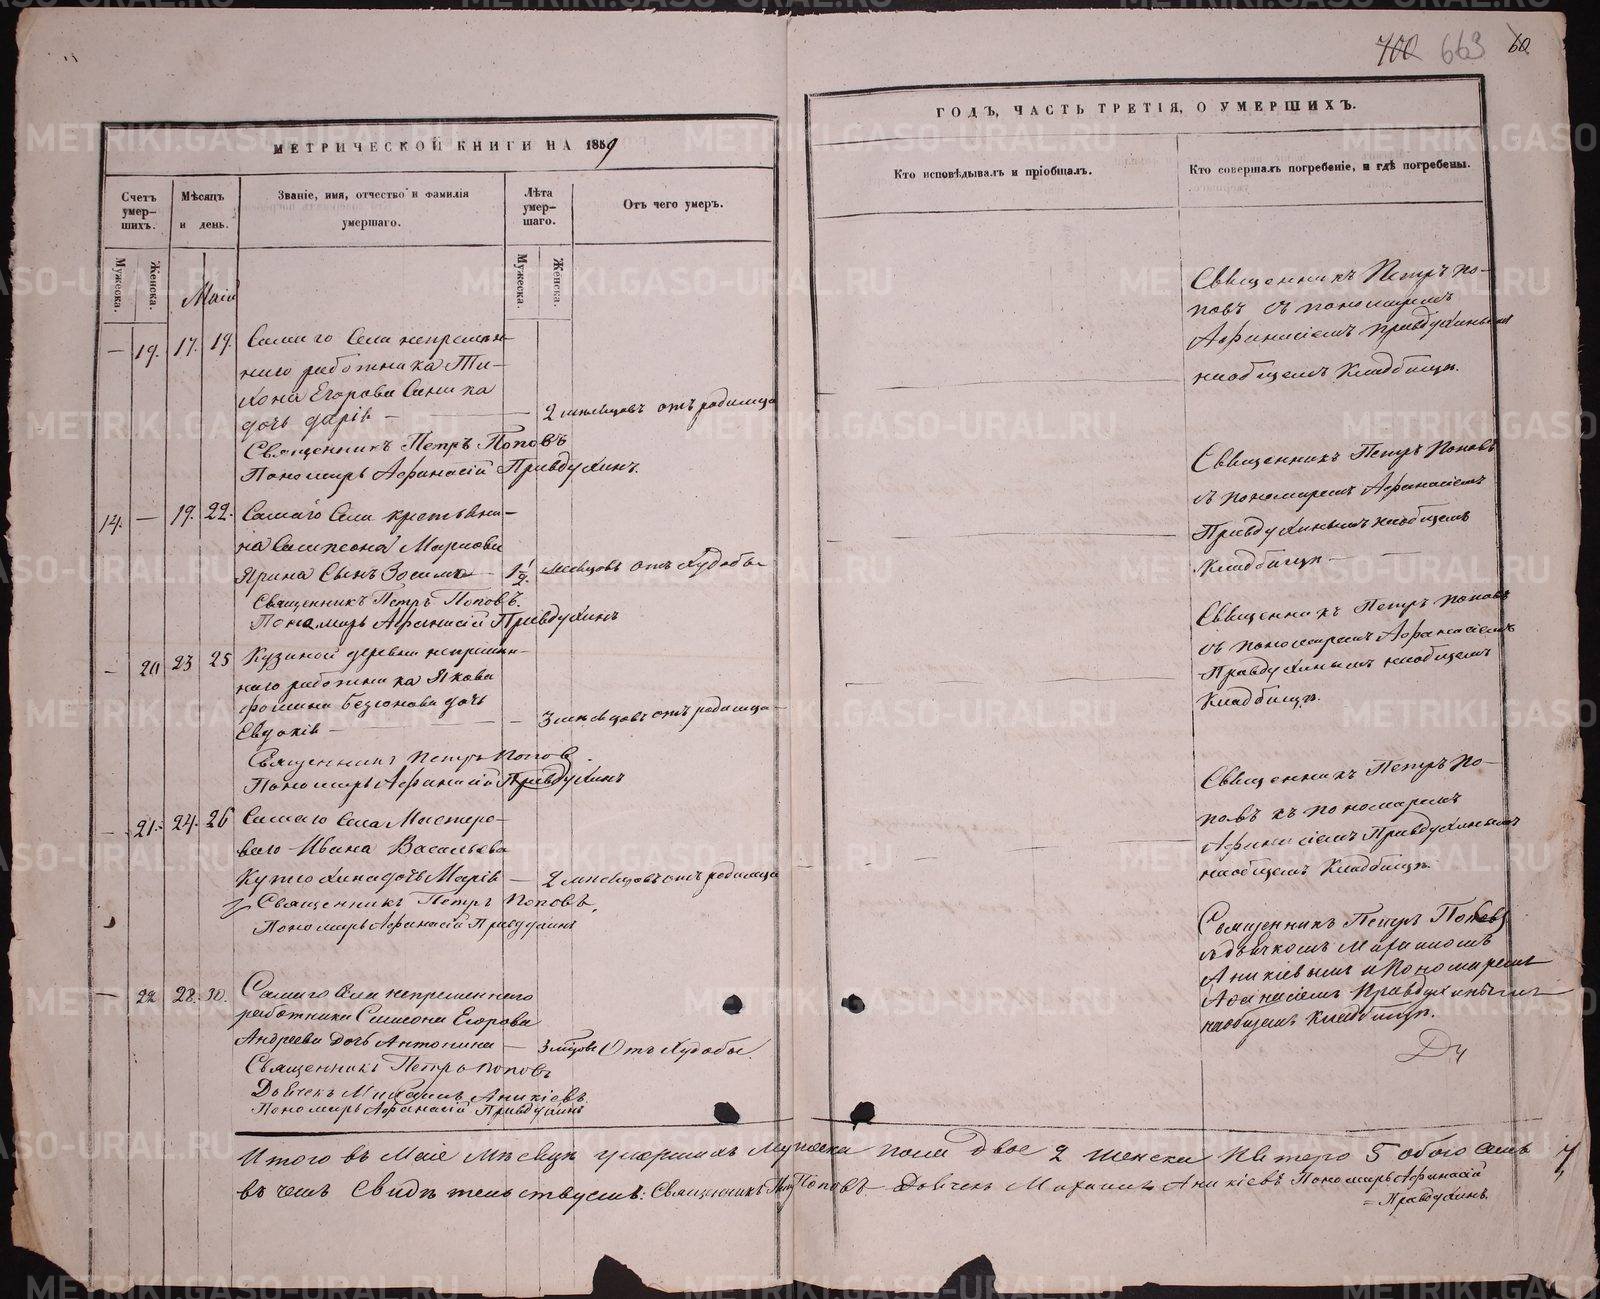 663
60
МЕТРИЧЕСКОЙ КНИГИ НА 1859
ГОДЪ, ЧАСТЬ ТРЕТІЯ, О УМЕРШИХЪ.
Счетъ умер-
шихъ.
Мужеска.
Женска.
Мѣсяцъ
и день.
Званіе, имя, отчество и фамилія
умершаго.
Лѣта
умер-
шаго.
Мужеска.
Женска.
Отъ чего умеръ.
Кто исповѣдывалъ и пріобщалъ.
Кто совершалъ погребеніе, и гдѣ погребены.
Маій
— 19. 17. 19. Самаго Села непремен-
наго работника Ти-
хона Егорова
дочь Дарія — — 2 месяцовъ отъ родимца
Священникъ Петръ Поповъ
Пономарь Афанасій Правдухинъ.
Священникъ Петръ По-
повъ съ пономаремъ
Афанасіемъ Правдухинымъ
наобщемъ Кладбищѣ.
14. — 19. 22. Самаго Села крестьяни-
на Сампсона Маркова
Ярина Сынъ Зосима — 1½ месяцовъ отъ Худобы
Священникъ Петръ Поповъ.
Пономарь Афанасій Правдухинъ
Священникъ Петръ Поповъ
съ пономаремъ Афанасіемъ
Правдухинымъ наобщемъ
Кладбищѣ —
— 20 23 25 Кузиной деревни непремен-
наго работника Якова
Фомина дочь
Евдокія — — 3 месяцовъ отъ родимца
Священникъ Петръ Поповъ.
Пономарь Афанасій Правдухинъ
Священникъ Петръ Поповъ
съ пономаремъ Афанасіемъ
Правдухинымъ наобщемъ
Кладбищѣ.
— 21. 24. 26 Самаго Села Мастеро-
ваго Ивана Васильева
дочь Марія — 2 месяцовъ отъ родимца
Священникъ Петръ Поповъ.
Пономарь Афанасій Правдухинъ
Священникъ Петръ По-
повъ съ пономаремъ
Афанасіемъ Правдухинымъ
наобщемъ Кладбищѣ.
— 22 28. 30. Самаго Села непременнаго
работника Симеона Егорова
Андреева дочь Антонина — 3 мѣсяцовъ Отъ Худобы.
Священникъ Петръ Поповъ
Дьячекъ Михаилъ Аникіевъ.
Пономарь Афанасій Правдухинъ
Священникъ Петръ Поповъ
съ дьячкомъ Михаиломъ
Аникіевымъ и Пономаремъ
Афанасіемъ Правдухинымъ
наобщемъ Кладбищѣ.
Итого въ Маіе Мѣсяцѣ умершихъ Мужеска пола двое 2 женска Пятеро 5 обоего семь 7
въ чемъ Свидѣтельствуемъ: Священникъ Петръ Поповъ Дьячекъ Михаилъ Аникіевъ Пономарь Афанасій
Правдухинъ.
METRIKI.GASO-URAL.RU